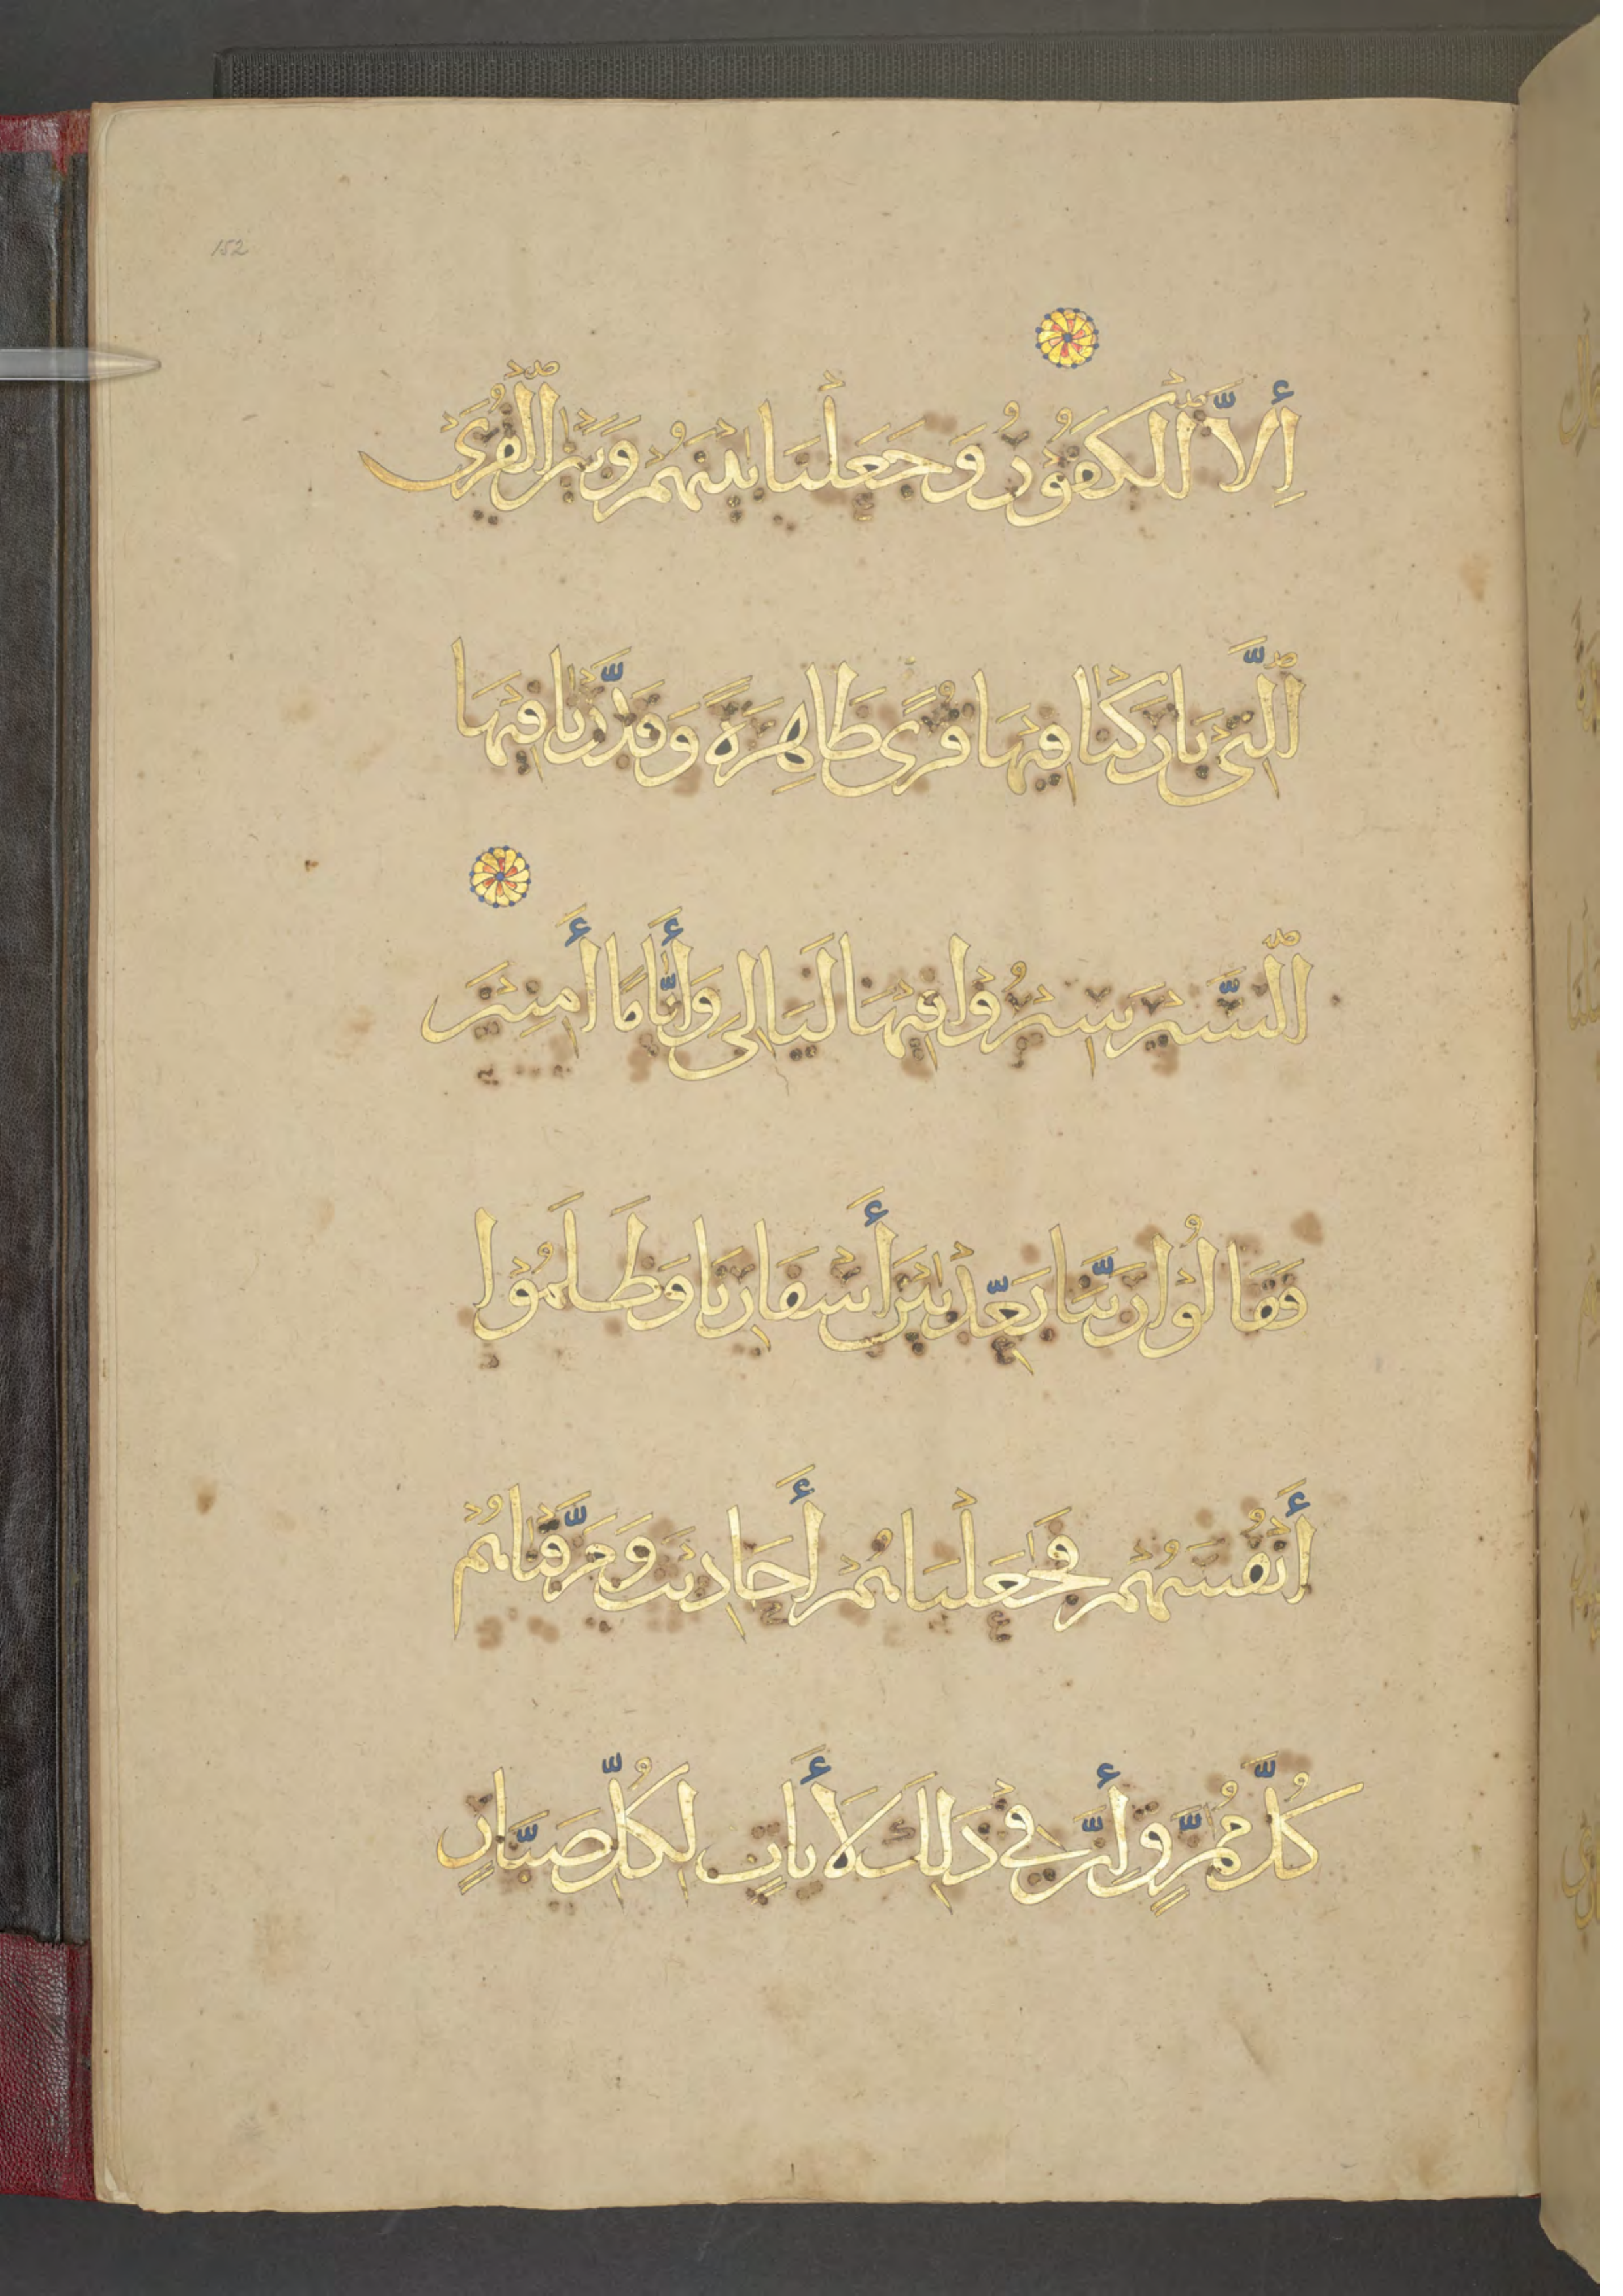 152
إِلَّا ٱلْكَفُورُ وَجَعَلْنَا بَيْنَهُمْ وَبَيْنَ ٱلْقُرَى
ٱلَّتِي بَارَكْنَا فِيهَا قُرًى ظَاهِرَةً وَقَدَّرْنَا فِيهَا
ٱلسَّيْرَ سِيرُوا فِيهَا لَيَالِيَ وَأَيَّامًا أَمِنِينَ
فَقَالُوا رَبَّنَا بَعِّدْ بَيْنَ أَسْفَارِنَا وَظَلَمُوا
أَنْفُسَهُمْ فَجَعَلْنَاهُمْ أَحَادِيثَ وَمَزَّقْنَاهُمْ
كُلَّ مُمَزَّقٍ إِنَّ فِي ذَلِكَ لَأَيَاتٍ لِكُلِّ صَبَّارٍ